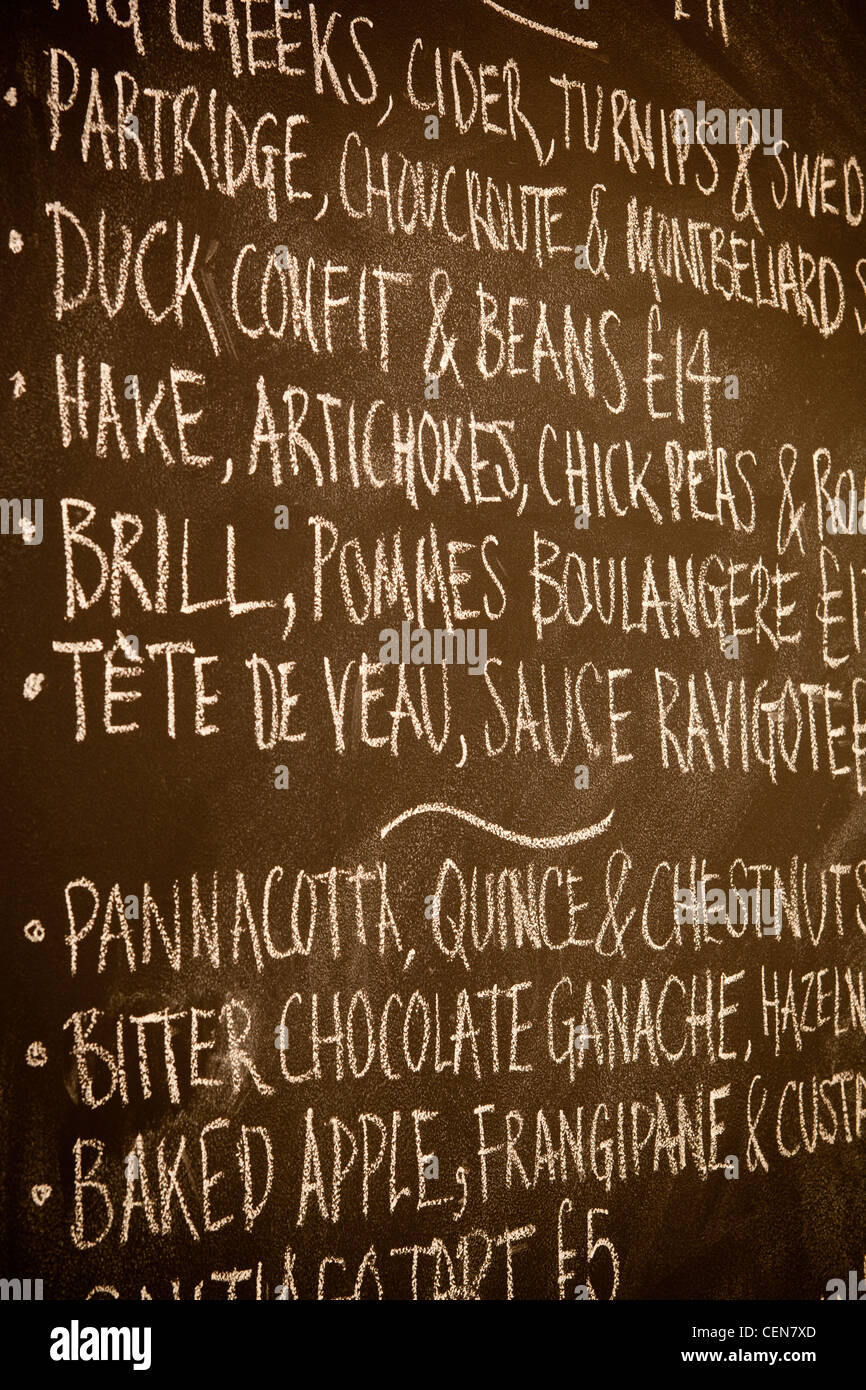 CHEEKS, CIDER, TURNIPS & SWED
• PARTRIDGE, CHOUCROUTE & MONTBELIARD S
• DUCK CONFIT & BEANS £14
• HAKE, ARTICHOKES, CHICKPEAS & RO
• BRILL, POMMES BOULANGERE £1
• TÊTE DE VEAU, SAUCE RAVIGOTE £
• PANNACOTTA, QUINCE & CHESTNUTS
• BITTER CHOCOLATE GANACHE, HAZELN
• BAKED APPLE, FRANGIPANE & CUST
SANTIAGO TART £5
alamy
Image ID: CEN7XD
www.alamy.com